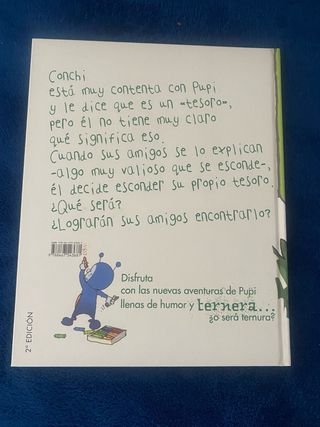 Conchi
está muy contenta con Pupi
y le dice que es un «tesoro»,
pero él no tiene muy claro
qué significa eso.
Cuando sus amigos se lo explican
-algo muy valioso que se esconde-,
él decide esconder su propio tesoro.
¿Qué será?
¿Lograrán sus amigos encontrarlo?
Disfruta
con las nuevas aventuras de Pupi
llenas de humor y ternera...
¿o será ternura?
2ª EDICIÓN